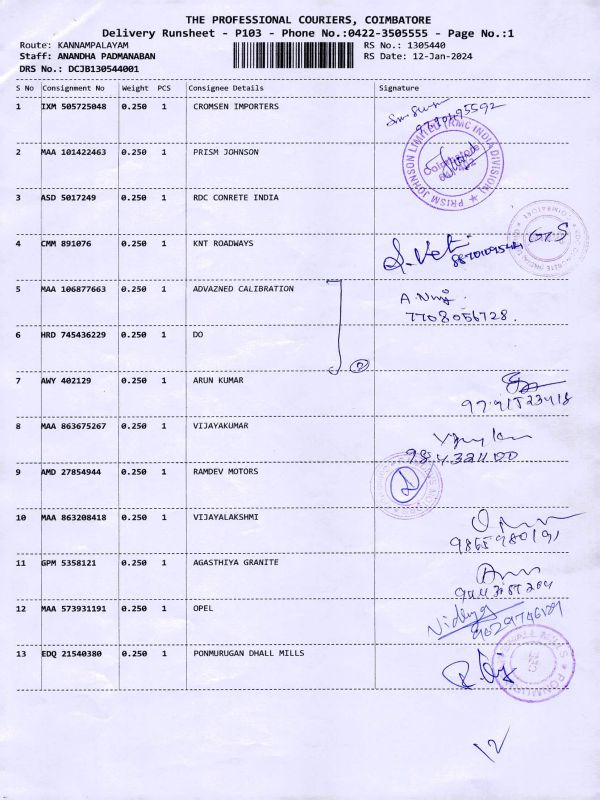 THE PROFESSIONAL COURIERS, COIMBATORE
Delivery Runsheet - P103 - Phone No.:0422-3505555 - Page No.:1
Route: KANNAMPALAYAM RS No.: 1305440
Staff: ANANDHA PADMANABAN RS Date: 12-Jan-2024
DRS No.: DCJB130544001
S No Consignment No Weight PCS Consignee Details Signature
1 IXM 505725048 0.250 1 CROMSEN IMPORTERS
2 MAA 101422463 0.250 1 PRISM JOHNSON
PRISM JOHNSON LIMITED (RMC INDIA DIVISION)
3 ASD 5017249 0.250 1 RDC CONRETE INDIA
4 CMM 891076 0.250 1 KNT ROADWAYS
5 MAA 106877663 0.250 1 ADVAZNED CALIBRATION
7708056728.
6 HRD 745436229 0.250 1 DO
2
7 AWY 402129 0.250 1 ARUN KUMAR
8 MAA 863675267 0.250 1 VIJAYAKUMAR
9 AMD 27854944 0.250 1 RAMDEV MOTORS
10 MAA 863208418 0.250 1 VIJAYALAKSHMI
9865980191
11 GPM 5358121 0.250 1 AGASTHIYA GRANITE
12 MAA 573931191 0.250 1 OPEL
Vidhya
13 EDQ 21540380 0.250 1 PONMURUGAN DHALL MILLS
12